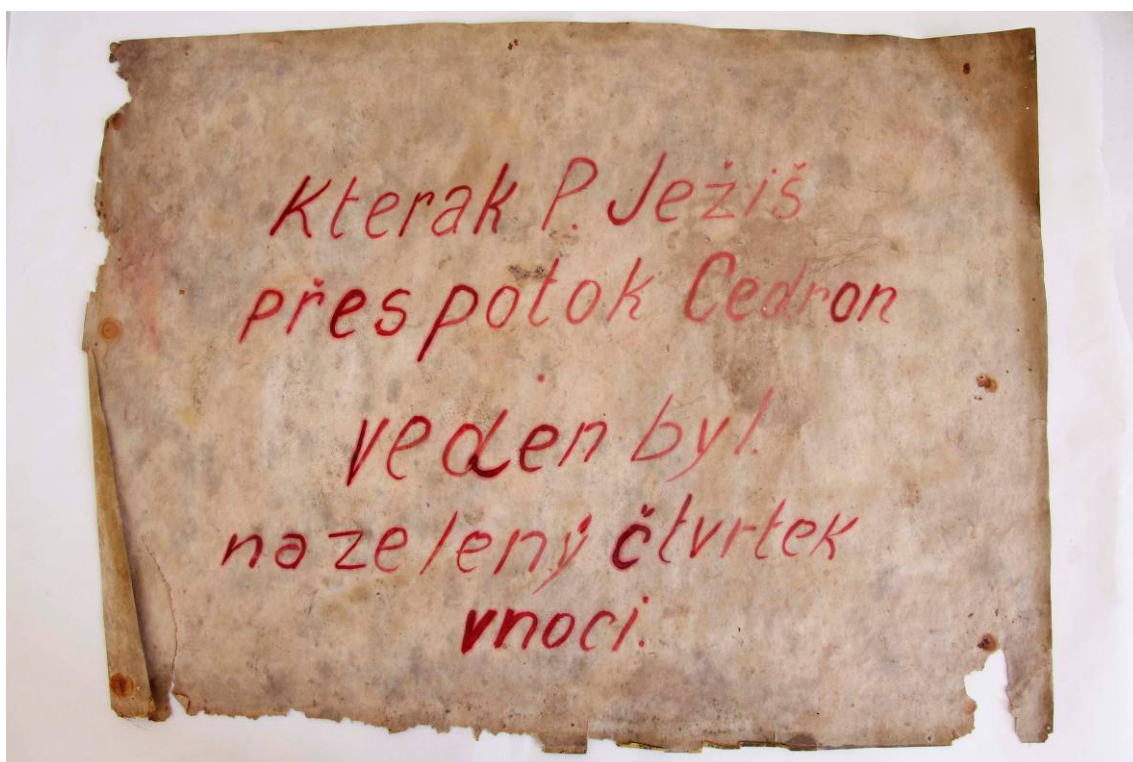 Kterak P. Ježiš
přes potok Cedron
veden byl.
na zelený čtvrtek
vnoci.